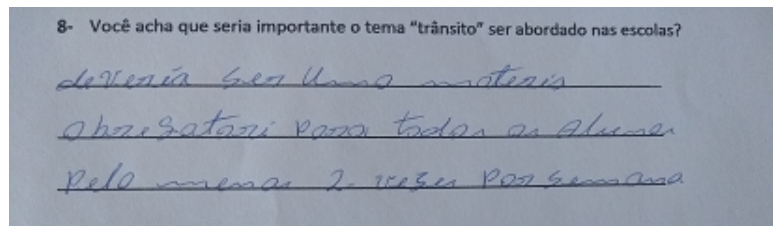 8- Você acha que seria importante o tema "trânsito" ser abordado nas escolas?
deveria ser uma materia
obrigatori para todos os alunos
pelo menos 2 vezes por semana